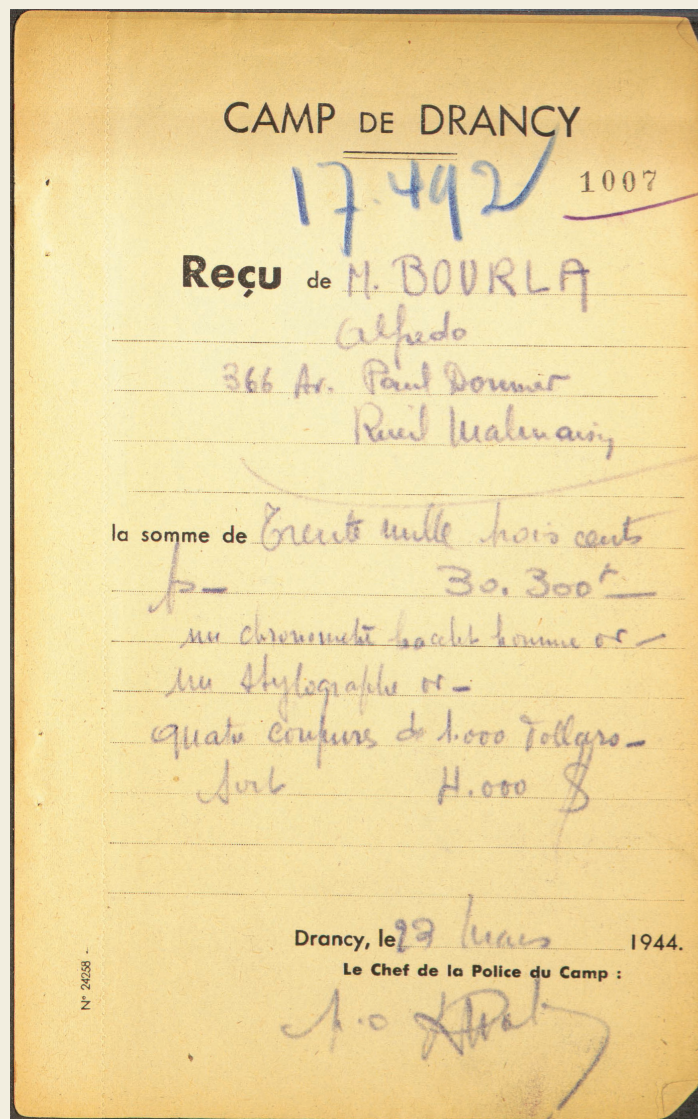 CAMP DE DRANCY
17.492
1007
Reçu de M. BOURLA
Alfredo
366 Av. Paul Doumer
Rueil Malmaison
la somme de Trente mille trois cents
fs— 30.300f—
un chronomètre homme or —
un stylographe or —
quatre coupures de 1.000 Dollars —
soit 4.000 $
Drancy, le Mars 1944.
Le Chef de la Police du Camp :
p.o
N° 24258 -